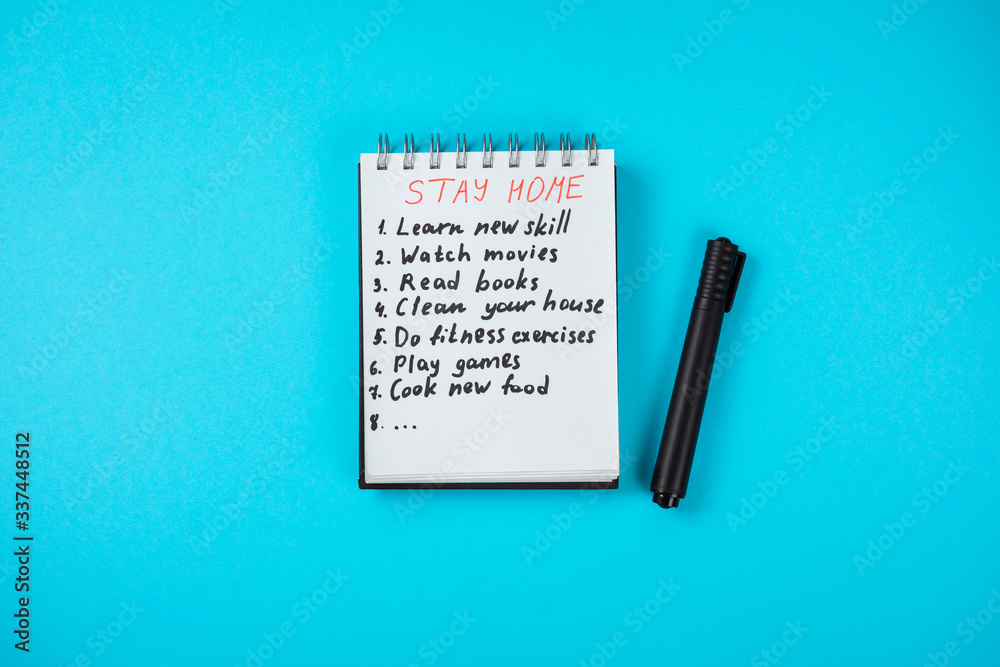 STAY HOME
1. Learn new skill
2. Watch movies
3. Read books
4. Clean your house
5. Do fitness exercises
6. Play games
7. Cook new food
8. ...
Adobe Stock | #337448512